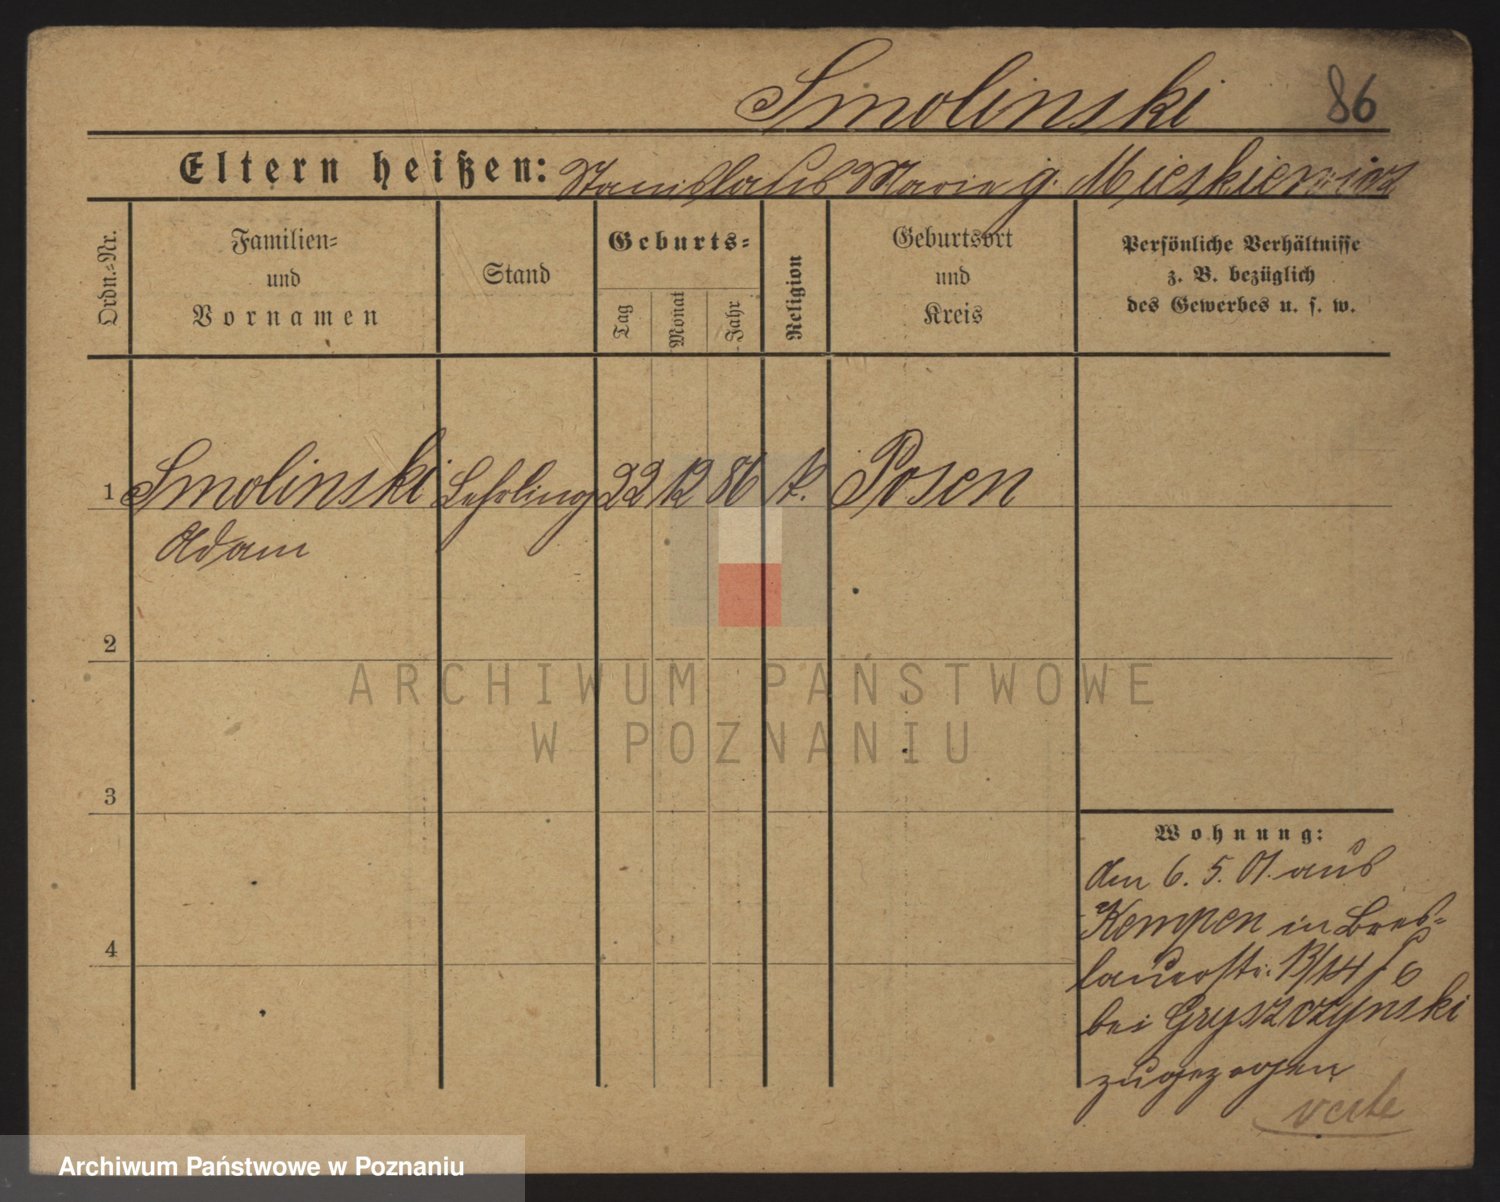 Smolinski 86
Eltern heißen: Stanislaus Marie g. Mieskiewicz
Ordn.-Nr.
Familien-
und
Vornamen
Stand
Geburts-
Tag
Monat
Jahr
Religion
Geburtsort
und
Kreis
Persönliche Verhältnisse
z. B. bezüglich
des Gewerbes u. s. w.
1 Smolinski Lehrling 22 12 86 k. Posen
Adam
2
3
4
ARCHIWUM PAŃSTWOWE
W POZNANIU
Wohnung:
den 6. 5. 01. aus
Kempen in Bres-
lauerstr. 13/14
bei Gryszczynski
zugezogen
verte
Archiwum Państwowe w Poznaniu